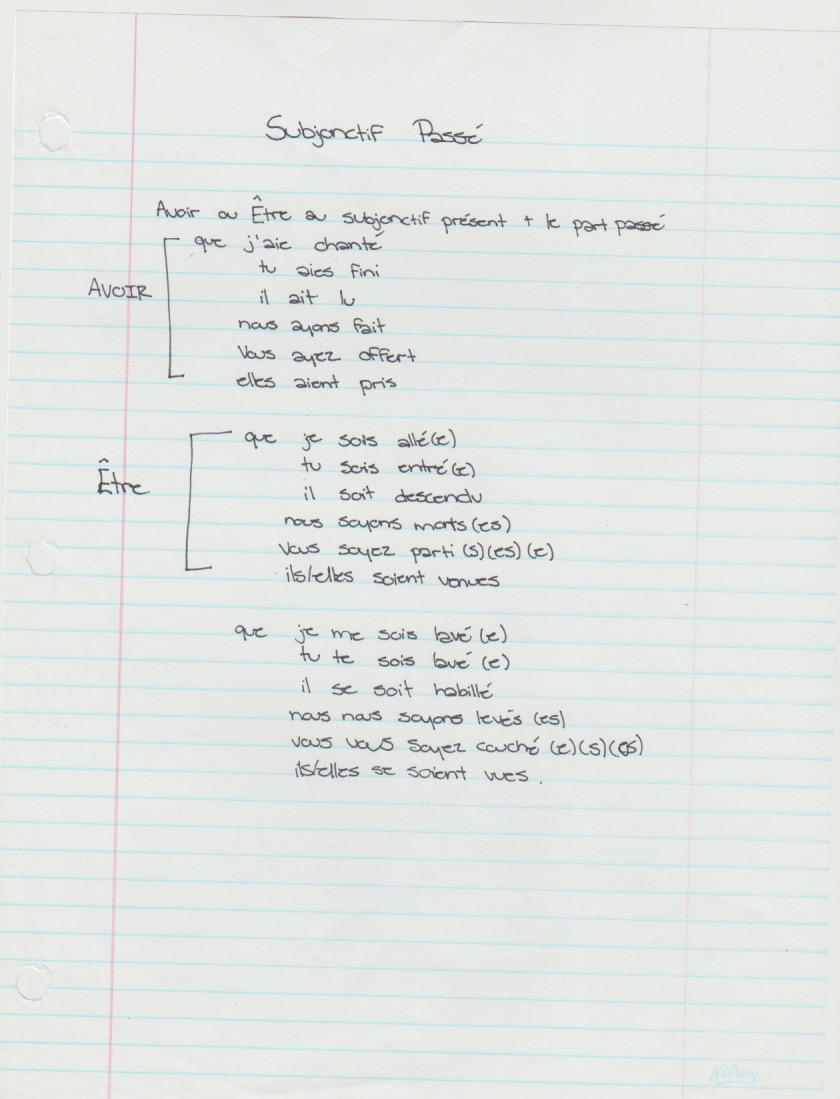 Subjonctif Passé
Avoir ou Être au subjonctif présent + le part passé
AVOIR
que j'aie chanté
tu aies fini
il ait lu
nous ayons fait
Vous ayez offert
elles aient pris
Être
que je sois allé(e)
tu sois entré(e)
il soit descendu
nous soyons morts(es)
vous soyez parti (s)(es)(e)
ils/elles soient venues
que je me sois lavé(e)
tu te sois lavé (e)
il se soit habillé
nous nous soyons levés (es)
vous vous soyez couché (e)(s)(es)
ils/elles se soient vues.
Hilroy